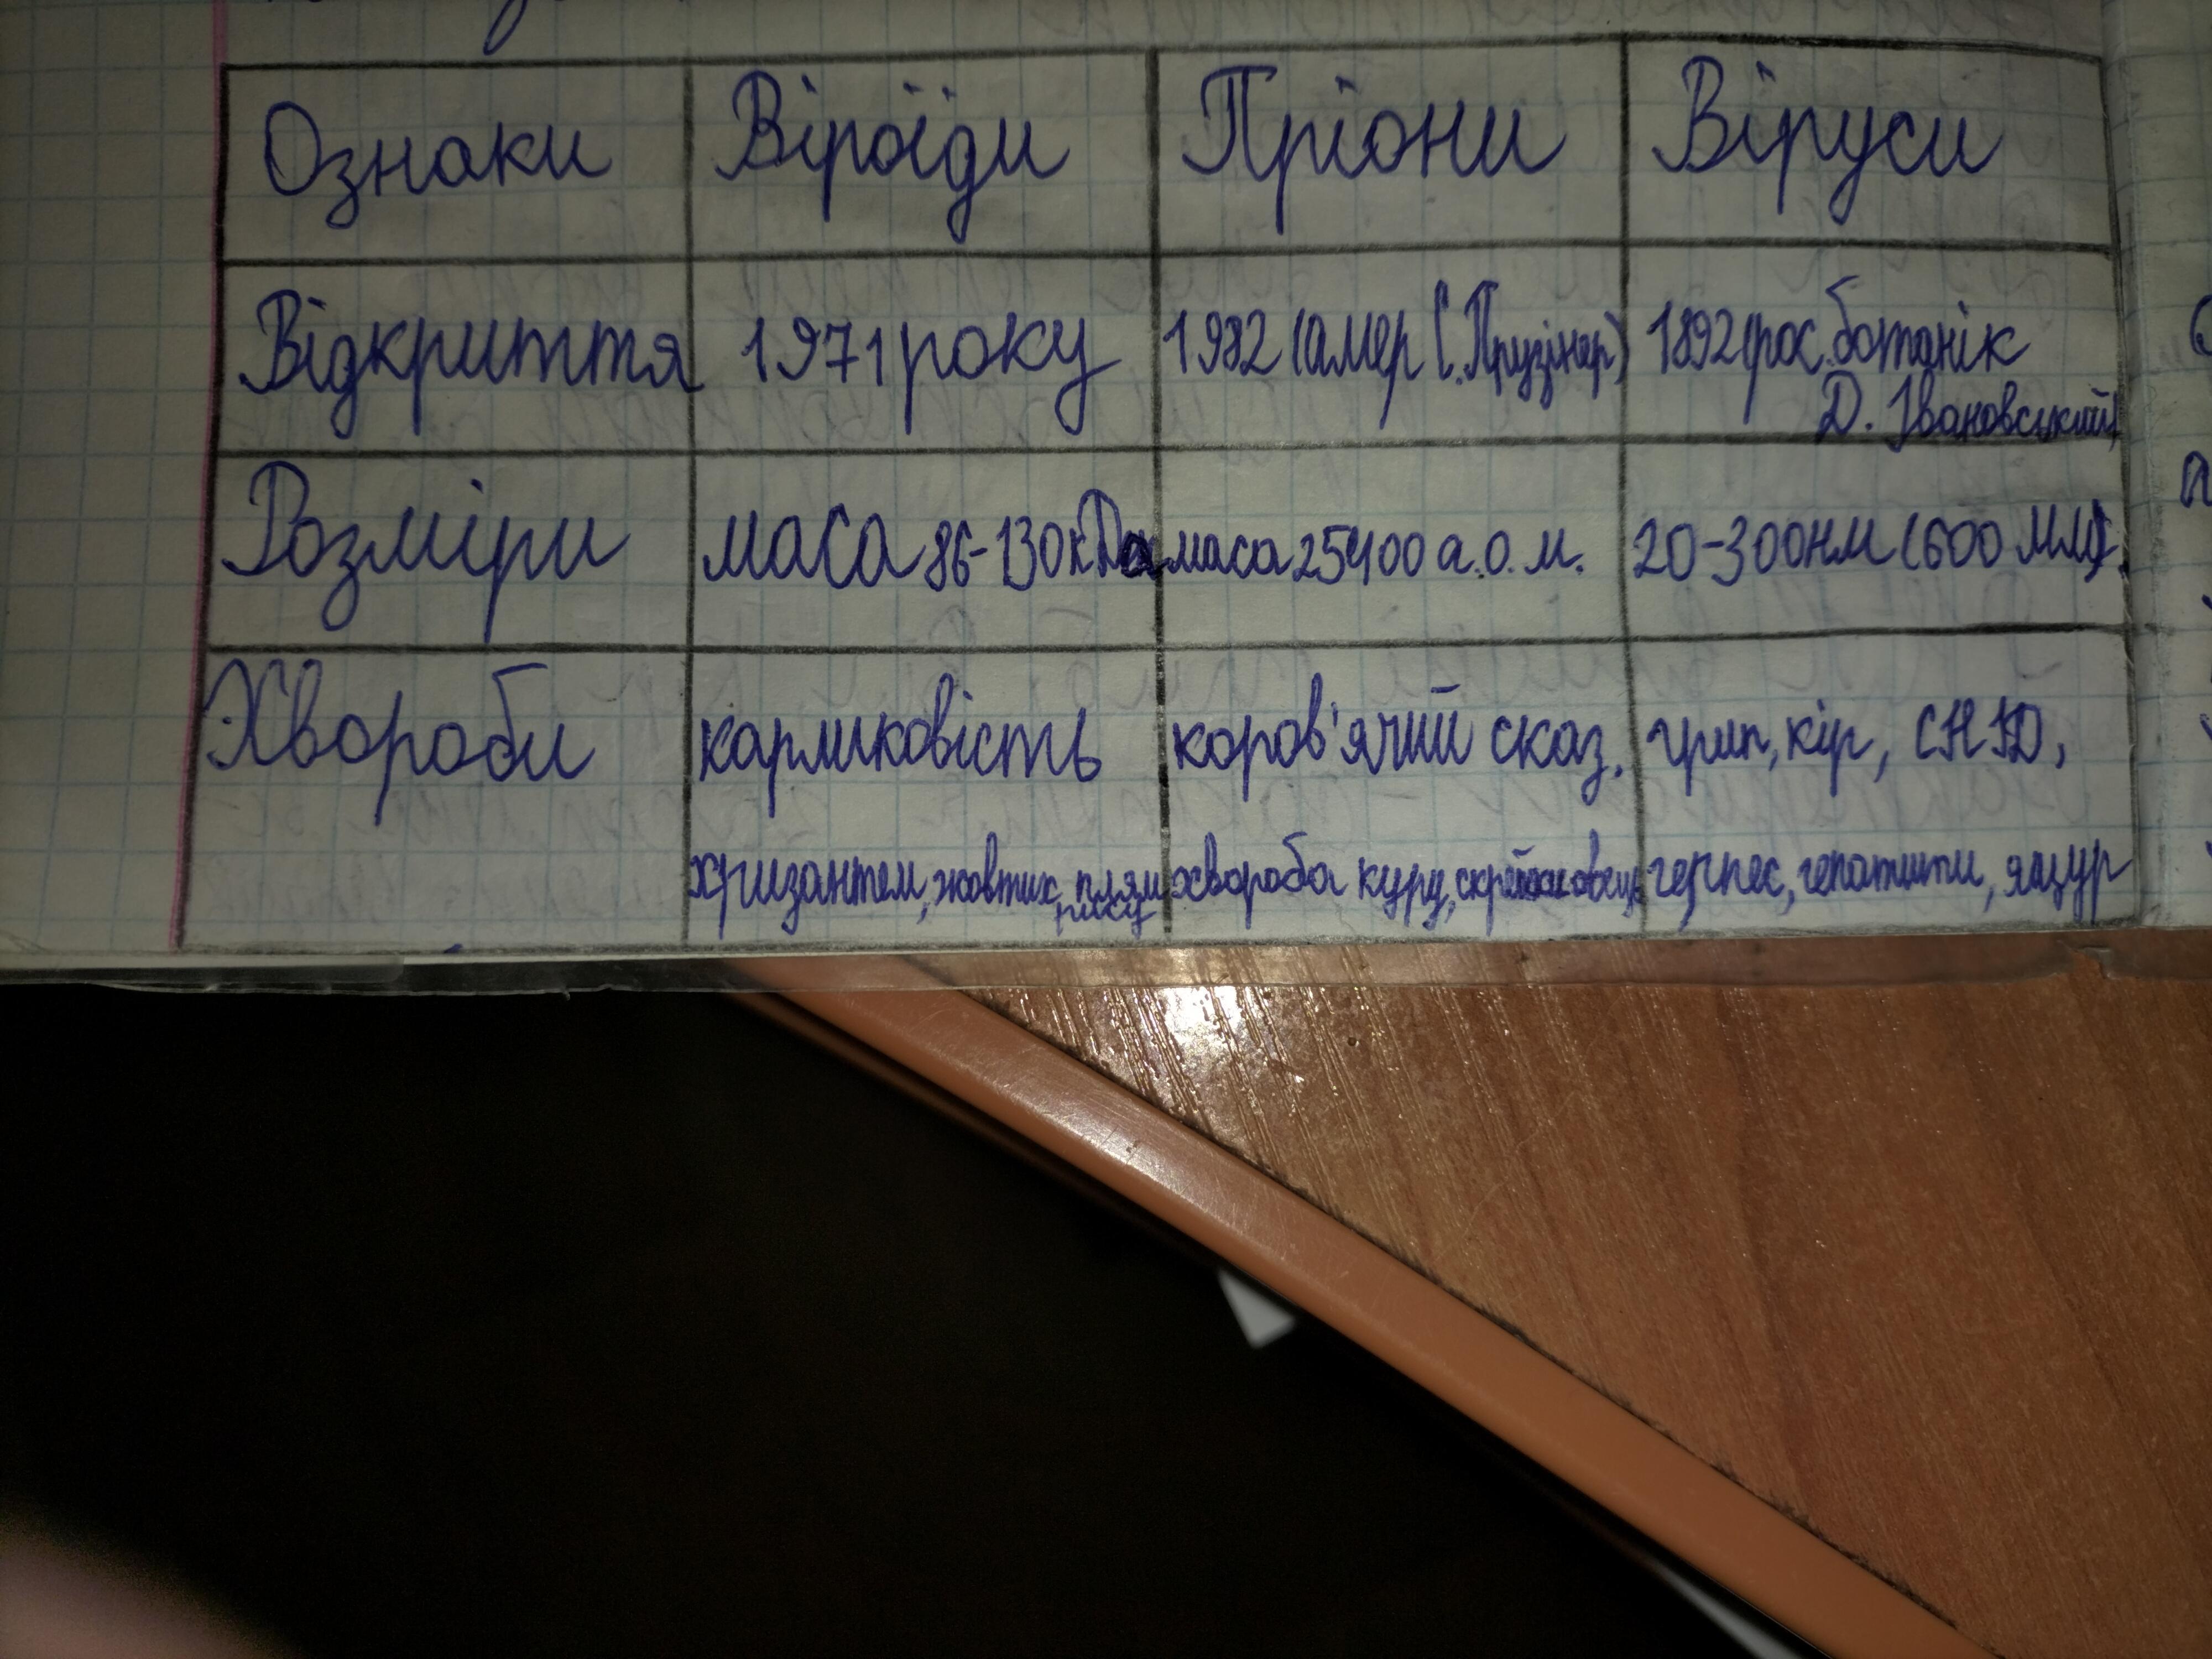 Ознаки Віроїди Пріони Віруси
Відкриття 1971 року 1982 (амер С. Прузінер) 1892 (рос. ботанік
Д. Івановський)
Розміри маса 86-130 кДа маса 25400 а.о.м. 20-300нм (600 млд).
Хвороби карликовість коров'ячий сказ, грип, кір, СНІД,
хризантем, жовтих плям хвороба куру, скрейпі овець герпес, гепатити, ящур
рису